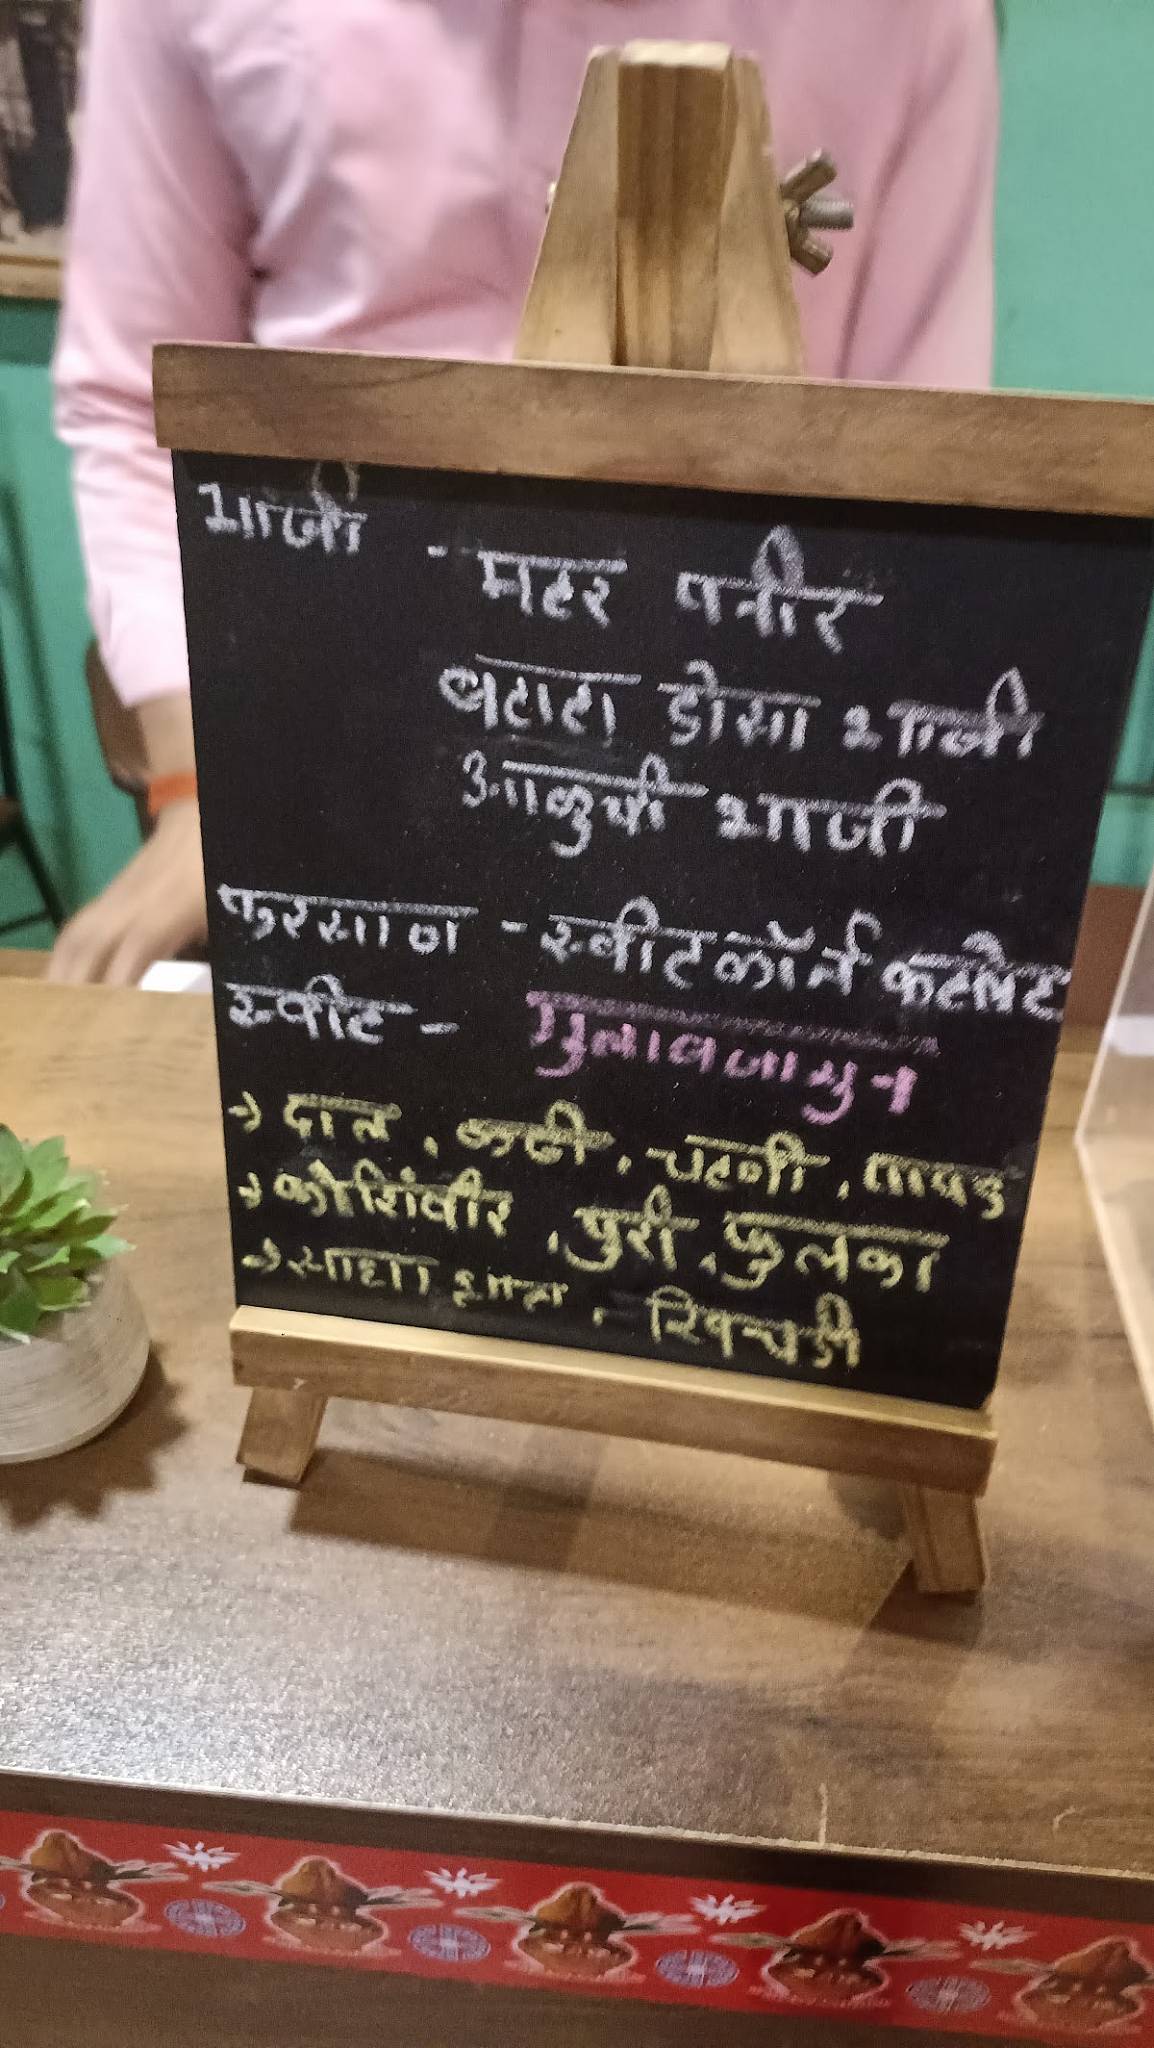 भाजी - मटर पनीर
बटाटा डोसा भाजी
आळुची भाजी
फरसाण - स्वीटकॉर्न कटलेट
स्वीट - गुलाबजामुन
→ दाल, कढी, चटणी, तापडु
→ कोशिंबीर, पुरी, फुलका
→ साधा भात, खिचडी